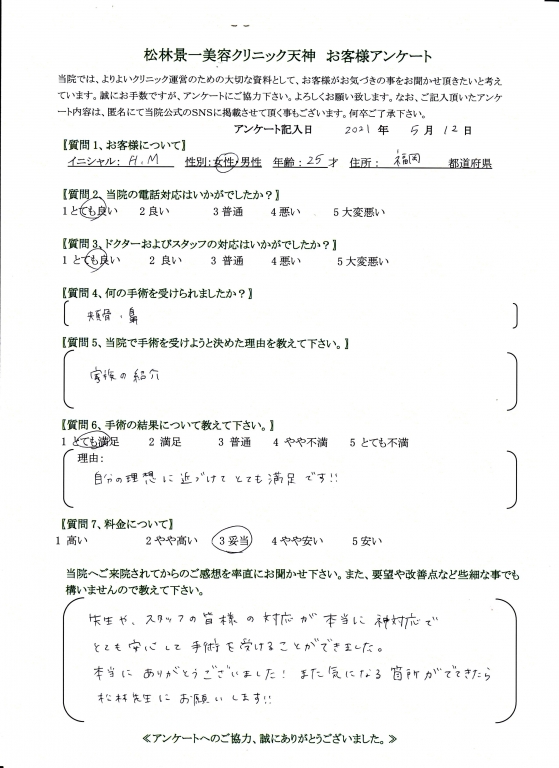 松林景一美容クリニック天神　お客様アンケート
当院では、よりよいクリニック運営のための大切な資料として、お客様がお気づきの事をお聞かせ頂きたいと考え
ています。誠にお手数ですが、アンケートにご協力下さい。よろしくお願い致します。なお、ご記入頂いたアンケ
ート内容は、匿名にて当院公式のSNSに掲載させて頂く事もございます。何卒ご了承下さい。
アンケート記入日　2021 年　5 月 12 日
〖質問 1、お客様について〗
イニシャル： H.M　性別：女性/男性　年齢：25 才　住所：　福岡　都道府県
〖質問 2、当院の電話対応はいかがでしたか？〗
1 とても良い　2 良い　3 普通　4 悪い　5 大変悪い
〖質問 3、ドクターおよびスタッフの対応はいかがでしたか？〗
1 とても良い　2 良い　3 普通　4 悪い　5 大変悪い
〖質問 4、何の手術を受けられましたか？〗
頬骨・鼻
〖質問 5、当院で手術を受けようと決めた理由を教えて下さい。〗
家族の紹介
〖質問 6、手術の結果について教えて下さい。〗
1 とても満足　2 満足　3 普通　4 やや不満　5 とても不満
理由：
自分の理想に近づけてとても満足です!!
〖質問 7、料金について〗
1 高い　2 やや高い　3 妥当　4 やや安い　5 安い
当院へご来院されてからのご感想を率直にお聞かせ下さい。また、要望や改善点など些細な事でも
構いませんので教えて下さい。
先生や、スタッフの皆様の対応が本当に神対応で
とても安心して手術を受けることができました。
本当にありがとうございました！また気になる箇所がでてきたら
松林先生にお願いします!!
≪アンケートへのご協力、誠にありがとうございました。≫